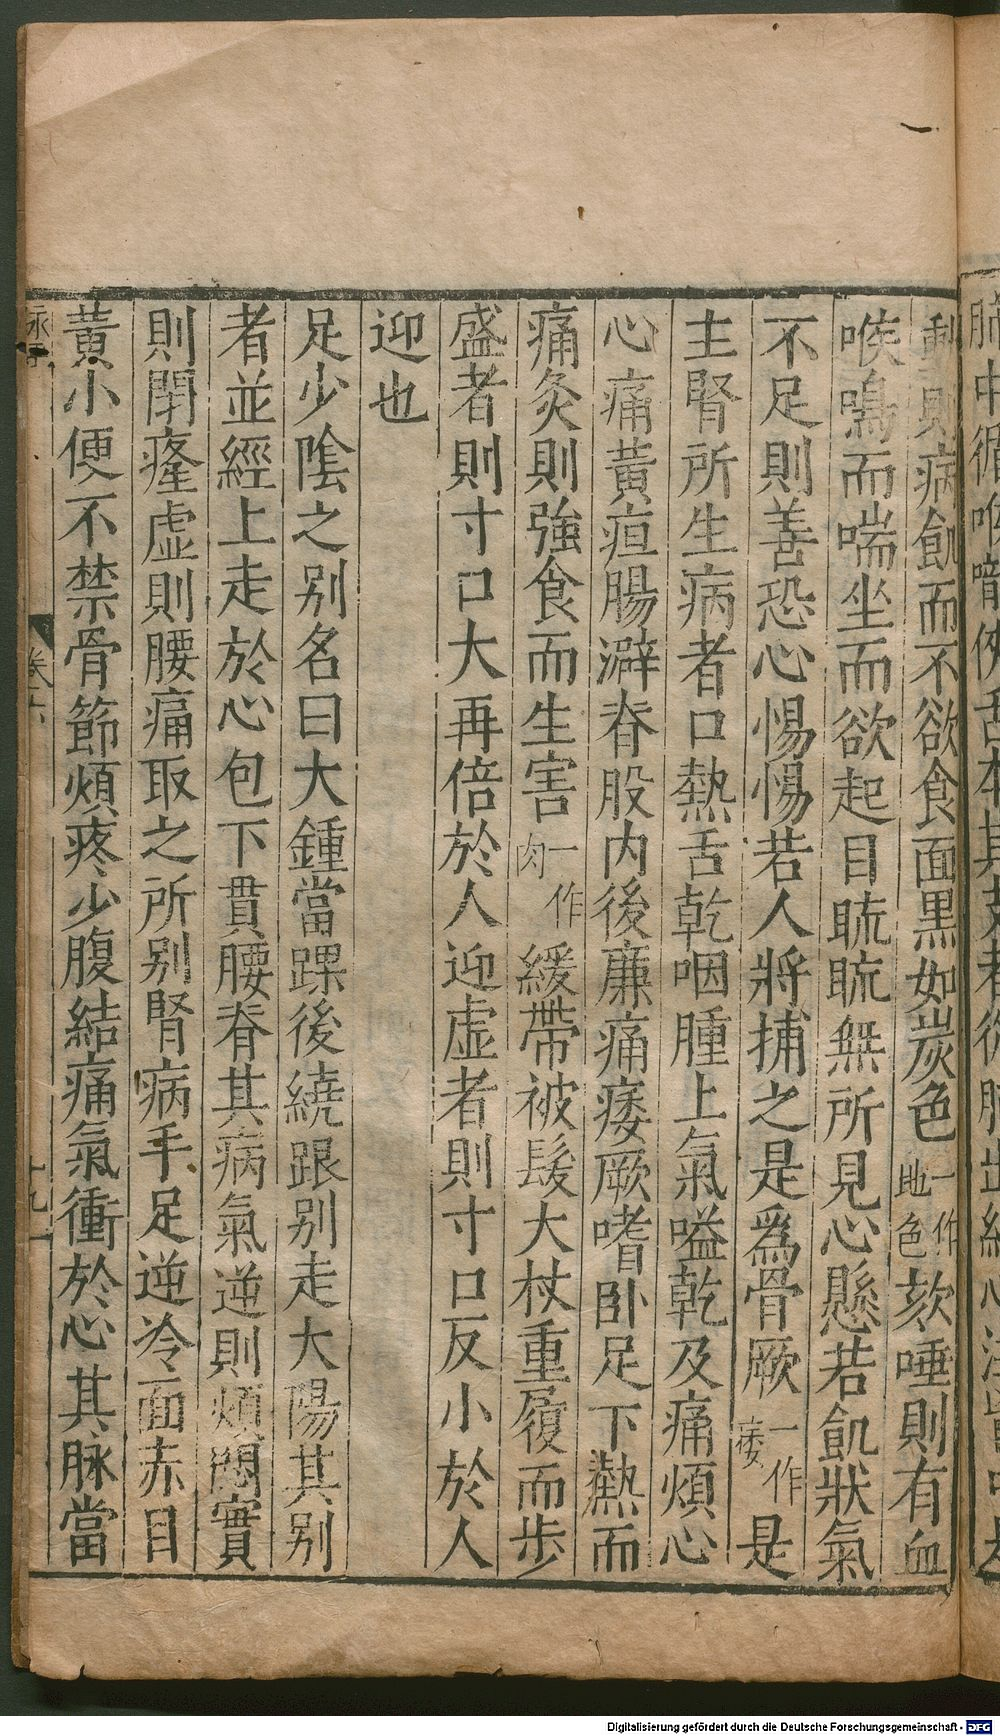 動則病飢而不欲食面黑如炭色一作地色欬唾則有血
喉鳴而喘坐而欲起目䀮䀮無所見心懸若飢狀氣
不足則善恐心惕惕若人將捕之是爲骨厥一作痿是
主腎所生病者口熱舌乾咽腫上氣嗌乾及痛煩心
心痛黃疸腸澼脊股內後廉痛痿厥嗜卧足下熱而
痛灸則強食而生害一作肉緩帶被髮大杖重履而步
盛者則寸口大再倍於人迎虛者則寸口反小於人
迎也
足少隂之别名曰大鍾當踝後繞跟别走大陽其别
者並經上走於心包下貫腰脊其病氣逆則煩悶實
則閉癃虛則腰痛取之所别腎病手足逆冷面赤目
黃小便不禁骨節煩疼少腹結痛氣衝於心其脉當
卷六
Digitalisierung gefördert durch die Deutsche Forschungsgemeinschaft - DFG